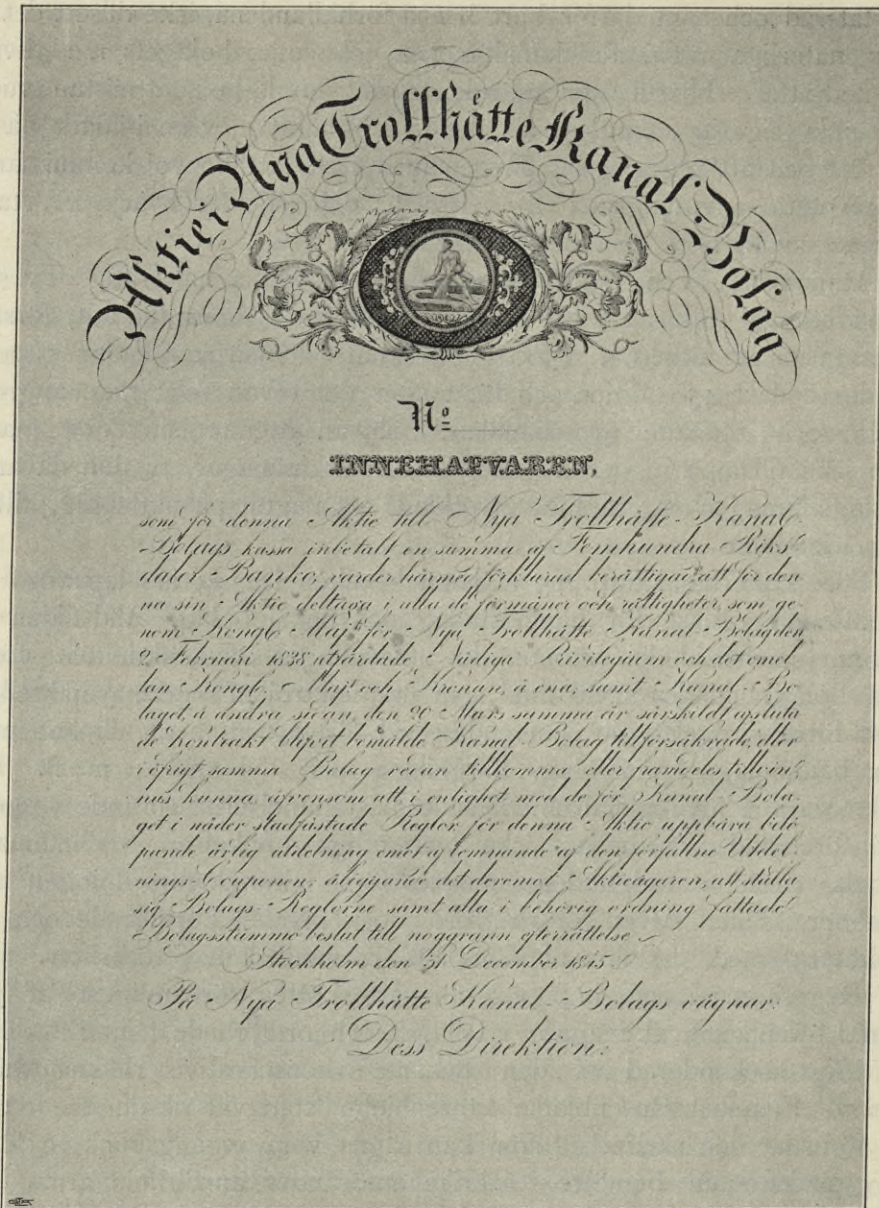 Aktie i Nya Trollhätte Kanal-Bolag
No
INNEHAFVAREN,
som för denna Aktie till Nya Trollhätte Kanal-
Bolags kassa inbetalt en summa af Femhundra Riks-
daler Banko, varder härmed förklarad berättigad att för den-
na sin Aktie deltaga i alla de förmåner och rättigheter, som ge-
nom Kongl. Maj:ts för Nya Trollhätte Kanal-Bolag den
2 Februari 1838 utfärdade Nådiga Privilegium och det emel-
lan Kongl. Maj:t och Kronan, å ena, samt Kanal-Bo-
laget, å andra sidan, den 20 Mars samma år särskildt afsluta-
de kontrakt blifvit bemälde Kanal-Bolag tillförsäkrade, eller
i öfrigt samma Bolag redan tillkomma eller framdeles tillvin-
nas kunna, äfvensom att i enlighet med de för Kanal-Bola-
get i nåder stadfästade Reglor för denna Aktie uppbära belö-
pande årlig utdelning emot aflemnande af den förfallne Utdel-
nings-Couponen; åliggande det deremot Aktieägaren, att ställa
sig Bolags-Reglorne samt alla i behörig ordning fattade
Bolagsstämmobeslut till noggrann efterrättelse.
Stockholm den 31 December 1845.
På Nya Trollhätte Kanal-Bolags vägnar:
Dess Direktion: